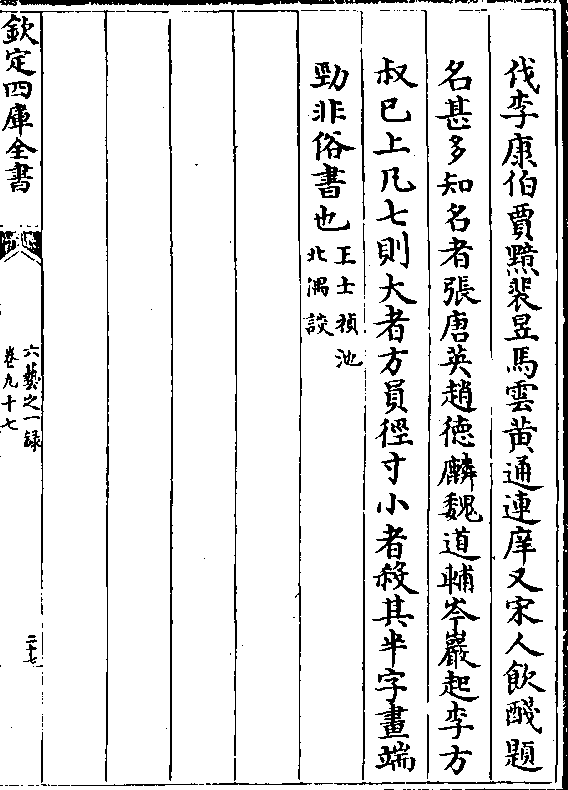 伐李康伯賈黯裴昱馬雲黄通連庠又宋人飲餞題
名甚多知名者張唐英趙德麟魏道輔岑巖起李方
叔已上凡七則大者方員徑寸小者殺其半字畫端
勁非俗書也王士禎池
北偶談
欽定四庫全書
六藝之一録
卷九十七
二十七